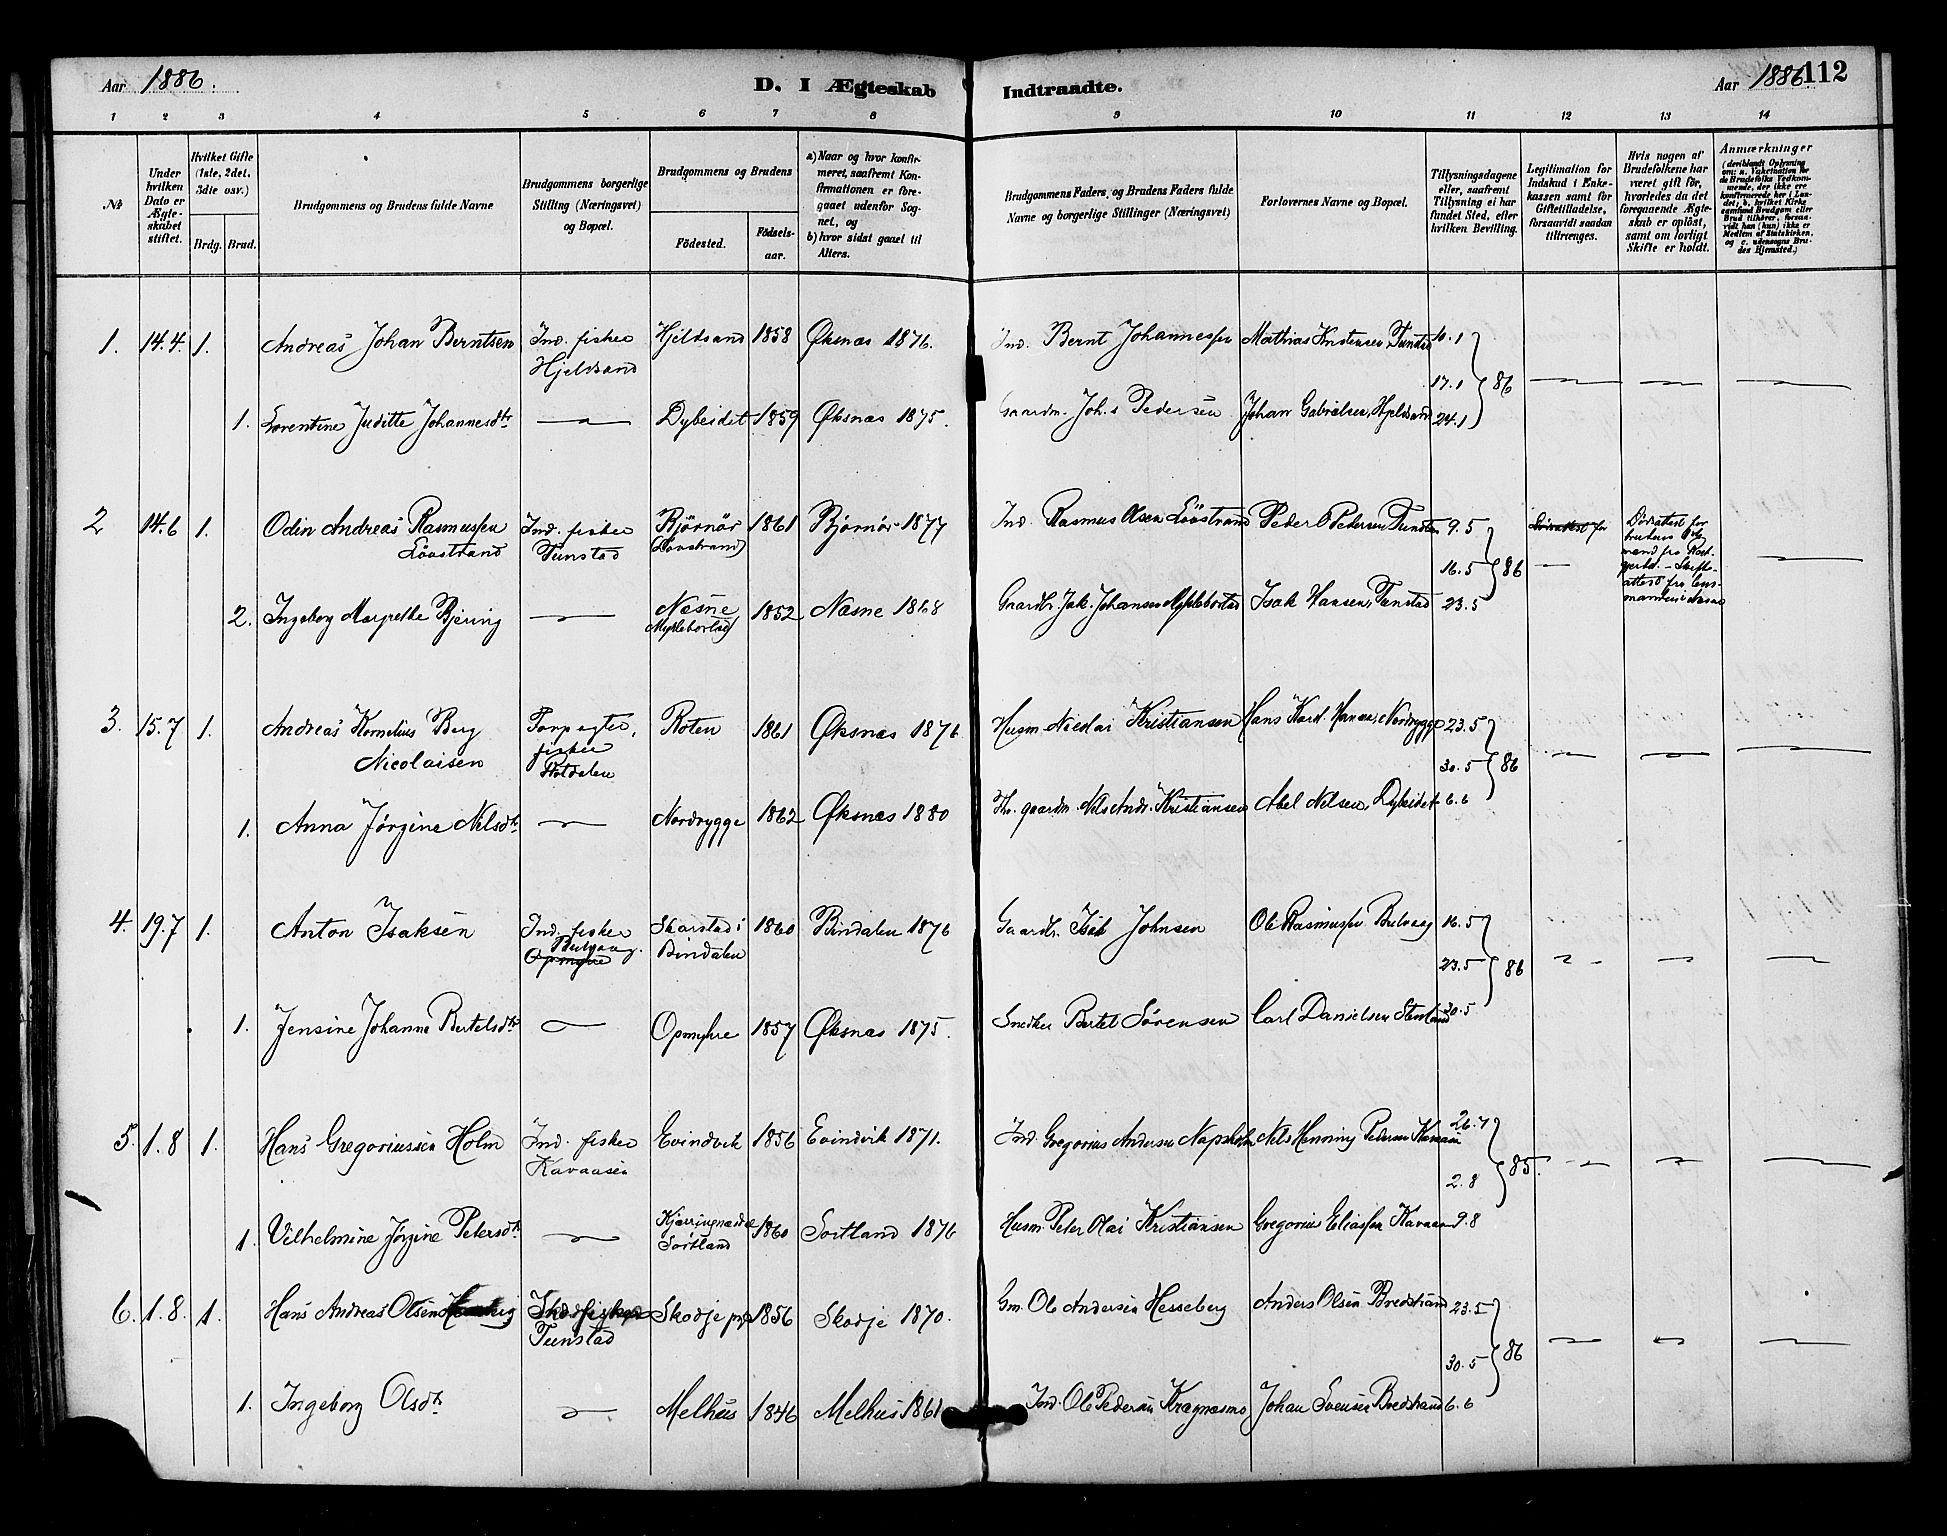 Aar 1886. D. I Ægteskab Indtraadte. Aar 1886. 112
1 2 3 4 5 6 7 8 9 10 11 12 13 14
No
Under hvilken Dato er Ægteskabet stiftet.
Hvilket Gifte (1ste, 2det, 3dte osv.)
Brdg. Brud.
Brudgommens og Brudens fulde Navne
Brudgommens borgerlige Stilling (Næringsvei) og Bopæl.
Brudgommens og Brudens
Födested. Födsels-aar.
a) Naar og hvor konfirmeret, saafremt Konfirmationen er foregaaet udenfor Sognet, og
b) hvor sidst gaaet til Alters.
Brudgommens Faders og Brudens Faders fulde Navne og borgerlige Stillinger (Næringsvei)
Forlovernes Navne og Bopæl.
Tillysningsdagene eller, saafremt Tillysning ei har fundet Sted, efter hvilken Bevilling.
Legitimation for Indskud i Enkekassen samt for Giftetilladelse, forsaavidt saadan tiltrænges.
Hvis nogen af Brudefolkene har været gift för, hvorledes da det foregaaende Ægteskab er oplöst, samt om lovligt Skifte er holdt.
Anmærkninger
1. 14.4. 1. Andreas Johan Berntsen Ind. fisker Hjeldsand Hjeldsand 1858 Øksnas 1876. Ind. Bernt Johannessen Mathias Tunstad 10.1
17.1 86
1. Lorentine Juditte Johannesdtr Dybeidet 1859 Øksnas 1875. Gaardm. Joh.s Pedersen Johan Gabrielsen, Hjeldsand 24.1
2 14.6 1. Odin Andreas Rasmussen Lövstrand Ind. fisker Tunstad Bjørnör (Lövstrand) 1861 Bjørnör 1877 Ind. Rasmus Olsen Lövstrand Peder Pedersen Tunstad 9.5
16.5 86 Dödsattest for brudens
2. Ingeborg Margrethe Bjering Næsne 1852 Næsne 1868 Gaardbr. Jak. Johansen Isak Hansen, Tunstad 23.5
3. 15.7 1. Andreas Kornelius Berg Nicolaisen fisker Roten 1861 Øksnas 1876 Husm. Nicolai Kristiansen Hans Kard. Hansen, Nordrygge 23.5
30.5 86
1. Anna Jørgine Nilsdtr Nordrygge 1862 Øksnas 1880 gaardm. Nils Andr. Kristiansen Abel Nilsen, Dybeidet 6.6
4. 19.7 1. Anton Isaksen Ind. fisker Bulvaag. Skarstad i Bindalen 1860 Bindalen 1876 Gaardbr. Isak Johnsen Ole Rasmussen Bulvaag 16.5
23.5 86
1. Jensine Johanne Bertelsdtr Opmyhre 1857 Øksnas 1875. Snedker Bertel Sörensen Carl Danielsen 30.5
5. 1.8 1. Hans Gregoriussen Holm Ind. fisker Kavaasen Evindvik 1856 Evindvik 1871. Ind. Gregorius Andersen Napsholm Nils Henning Pedersen 26.7
2.8 85.
1. Vilhelmine Jörgine Petersdtr Sortland 1860 Sortland 1876 Husm. Peter Olai Kristiansen Gregorius Eliassen Kavaasen 9.8
6. 1.8. 1. Hans Andreas Olsen Tunstad Skodje 1856 Skodje 1870. Gm. Ole Andersen Hesseberg Anders Olsen Bredstrand 23.5
30.5 86
1. Ingeborg Olsdtr Melhus 1846 Melhus 1861 Ind. Ole Pedersen Kragnæsmo Johan Svensen Bredstrand 6.6